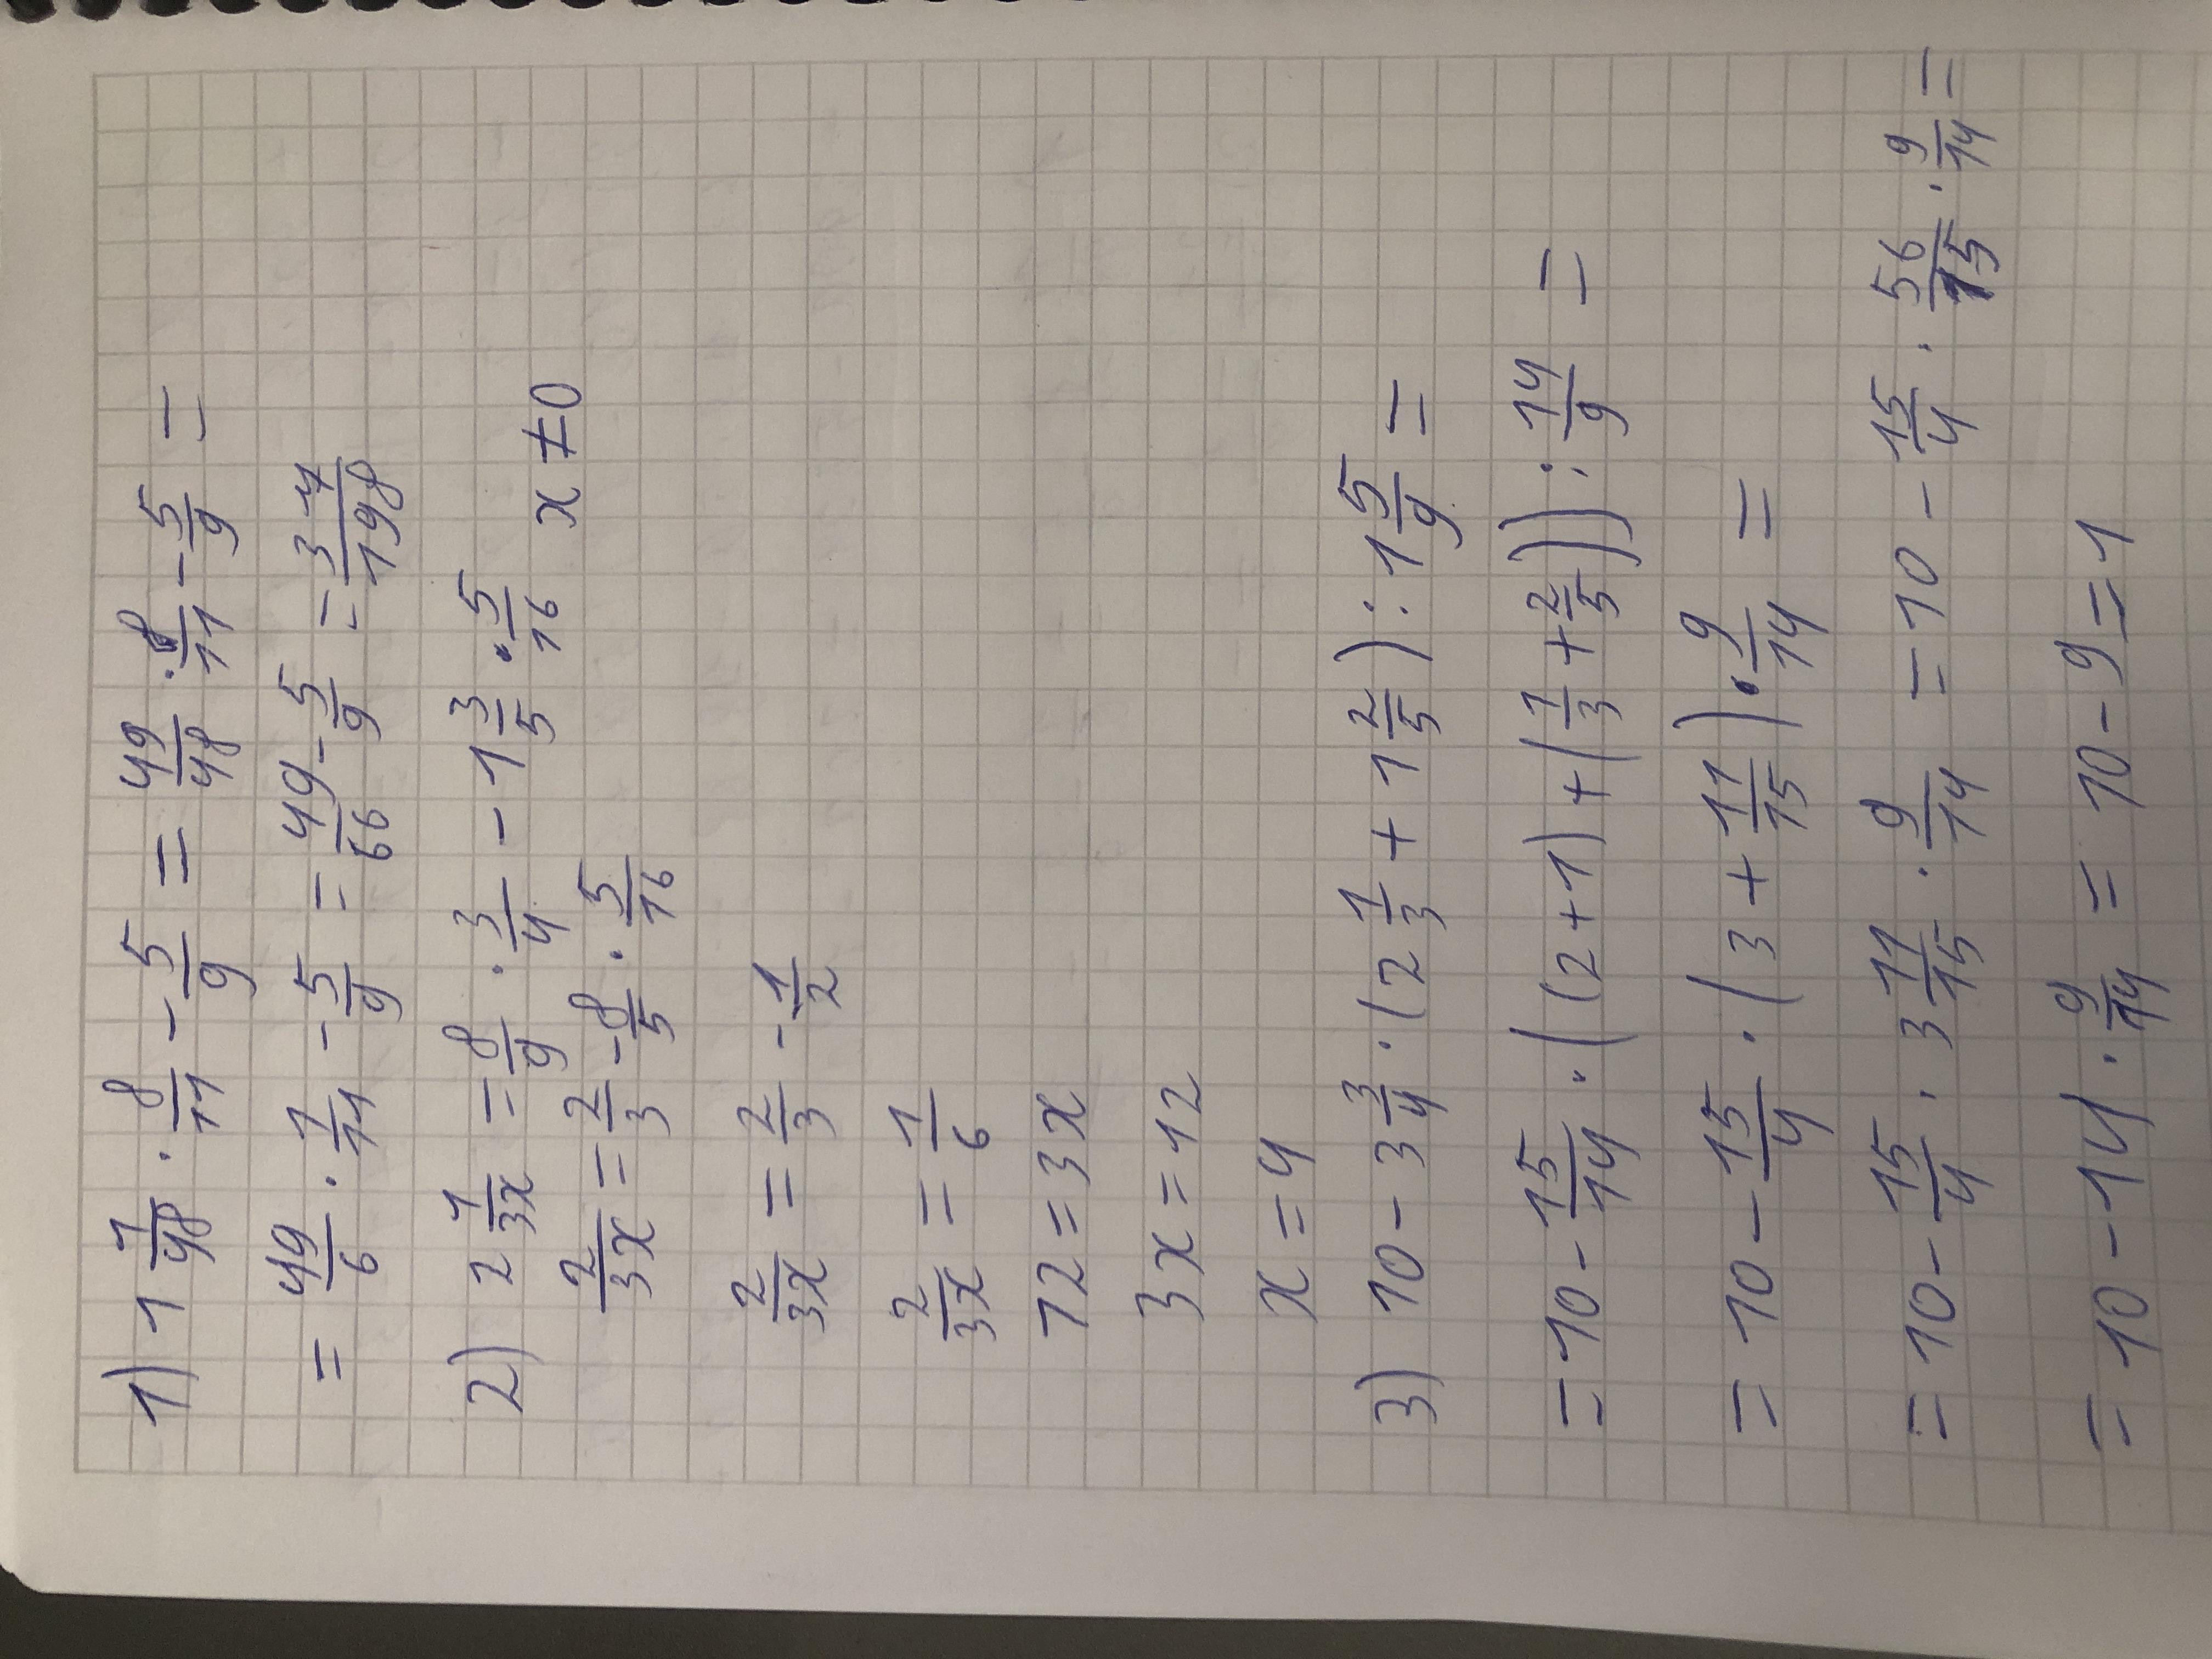 1) 1 1/48 · 8/11 - 5/9 = 49/48 · 8/11 - 5/9 =
= 49/6 · 1/11 - 5/9 = 49/66 - 5/9 = 37/198
2) 2 1/3x = 8/9 · 3/4 - 1 3/5 · 5/16
2/3x = 2/3 - 8/5 · 5/16 x ≠ 0
2/3x = 2/3 - 1/2
2/3x = 1/6
12 = 3x
3x = 12
x = 4
3) 10 - 3 3/4 · (2 1/3 + 1 2/5) : 1 5/9 =
= 10 - 15/14 · ((2 + 1) + (1/3 + 2/5)) : 14/9 =
= 10 - 15/4 · (3 + 11/15) · 9/14 =
= 10 - 15/4 · 3 11/15 · 9/14 = 10 - 15/4 · 56/15 · 9/14 =
= 10 - 14 · 9/14 = 10 - 9 = 1